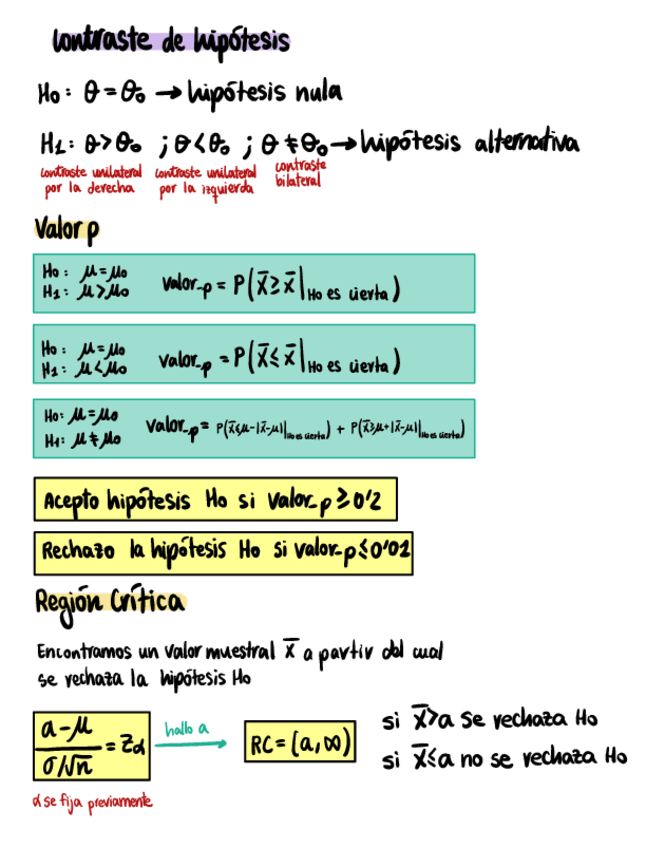 Contraste de hipótesis
H₀: θ = θ₀ → hipótesis nula
H₁: θ > θ₀ ; θ < θ₀ ; θ ≠ θ₀ → hipótesis alternativa
contraste unilateral por la derecha
contraste unilateral por la izquierda
contraste bilateral
Valor p
H₀: μ = μ₀
H₁: μ > μ₀
valor_p = P(X̄ ≥ x̄ |H₀ es cierta)
H₀: μ = μ₀
H₁: μ < μ₀
valor_p = P(X̄ ≤ x̄ |H₀ es cierta)
H₀: μ = μ₀
H₁: μ ≠ μ₀
valor_p = P(X̄ ≤ μ - |x̄ - μ| |H₀ es cierta) + P(X̄ ≥ μ + |x̄ - μ| |H₀ es cierta)
Acepto hipótesis H₀ si valor_p ≥ 0'2
Rechazo la hipótesis H₀ si valor_p ≤ 0'01
Región Crítica
Encontramos un valor muestral x̄ a partir del cual
se rechaza la hipótesis H₀
(a - μ) / (σ/√n) = Zα
hallo a
RC = (a, ∞)
si X̄ > a se rechaza H₀
si X̄ ≤ a no se rechaza H₀
α se fija previamente